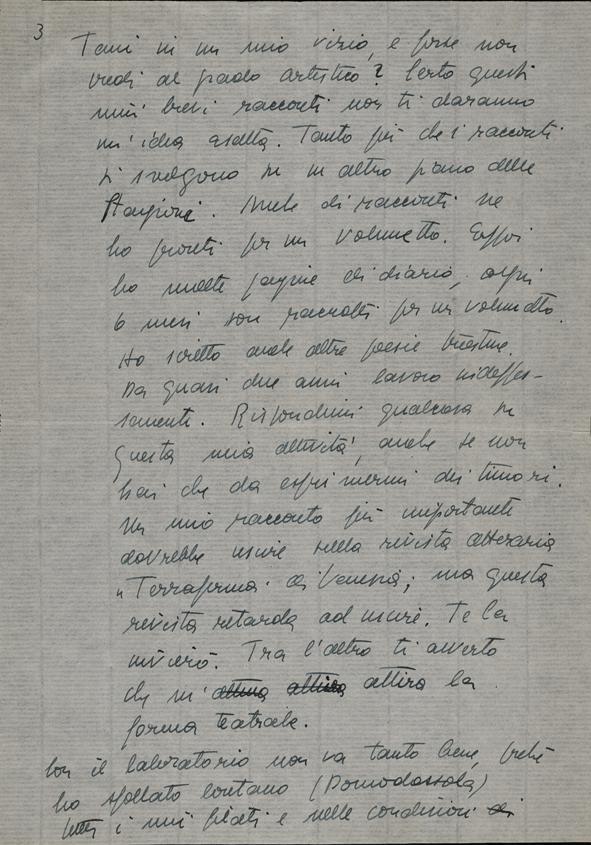 3
Temi in un mio vizio, e forse non
credi al parto artistico? Certo questi
miei brevi racconti non ti daranno
un'idea esatta. Tanto più che i racconti
si svolgono su un altro piano delle
Stagioni. Anche di racconti ne
ho pronti per un volumetto. E poi
ho molte pagine di diario, ogni
6 mesi son raccolti per un volumetto.
Ho scritto anche altre poesie triestine.
Da quasi due anni lavoro indefes-
samente. Rispondimi qualcosa su
questa mia attività, anche se non
hai che da esprimermi dei timori.
Un mio racconto più importante
dovrebbe uscire nella rivista letteraria
"Terraferma" di Venezia; ma questa
rivista retarda ad uscire. Te la
invierò. Tra l'altro ti avverto
che m'attira la
forma teatrale.
Con il laboratorio non va tanto bene, perchè
ho sfollato lontano (Domodossola)
tutti i miei filati e nelle condizioni di